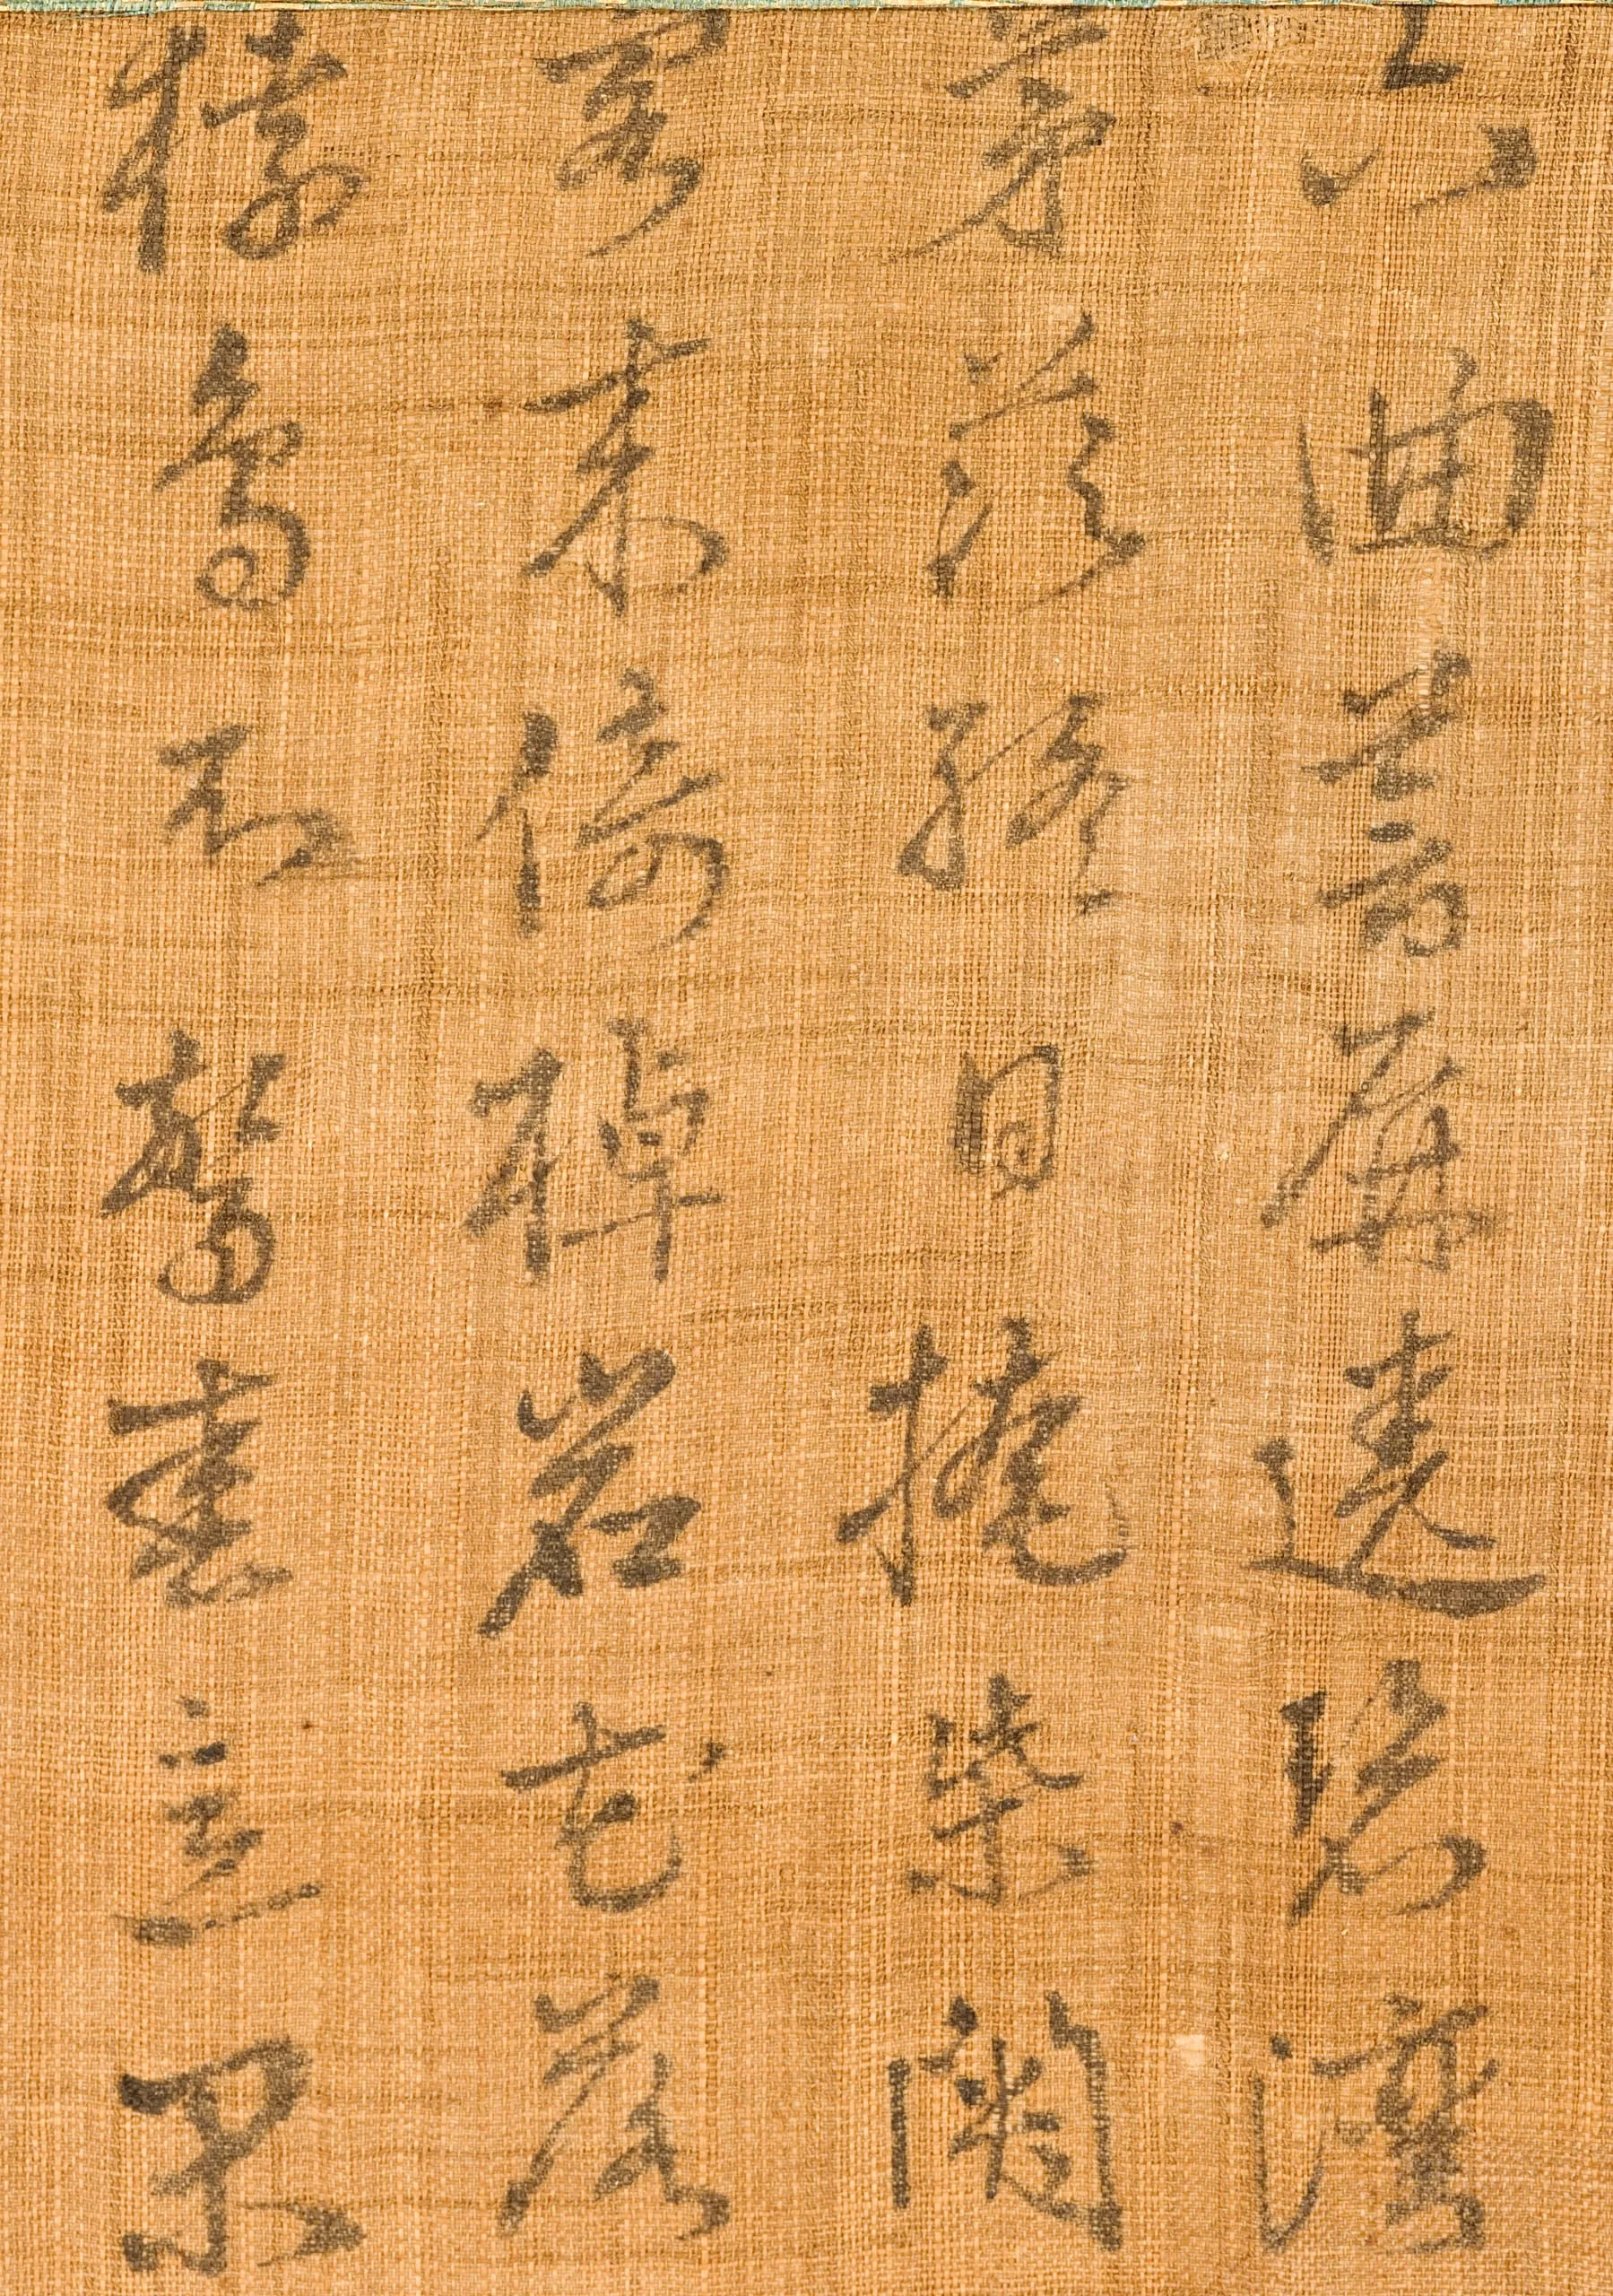 六曲蒼屏遶碧灣
茅茨終日掩柴関
客来倚棹岩花落
猿鳥不驚春意閑